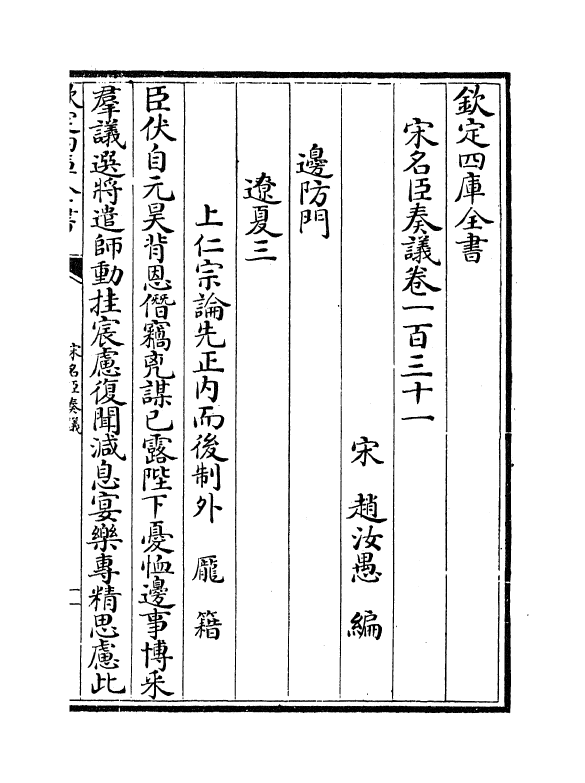 欽定四庫全書
宋名臣奏議卷一百三十一
宋 趙汝愚 編
邊防門
遼夏三
上仁宗論先正內而後制外 龎籍
臣伏自元昊背恩僭竊兇謀已露陛下憂恤邊事博采
羣議選將遣師動挂宸慮復聞減息宴樂專精思慮此
欽定四庫全書
宋名臣奏議
一